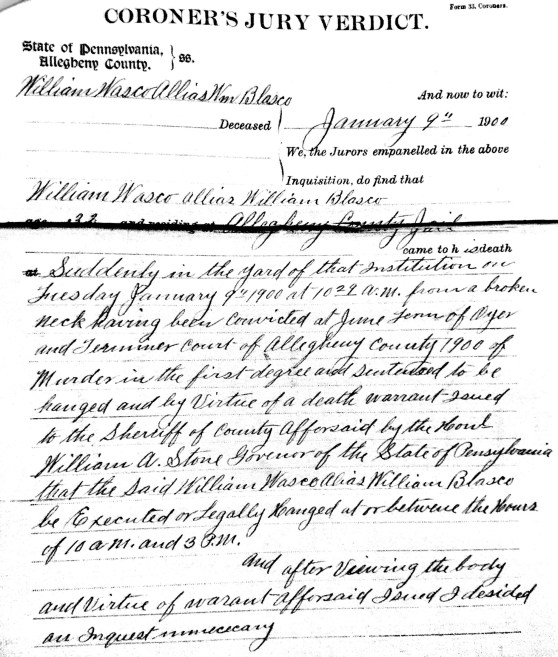 Form 33, Coroners.
CORONER'S JURY VERDICT.
State of Pennsylvania,
Allegheny County. } ss.
William Wasco Allias Wm Blasco
And now to wit:
Deceased January 9" 1900
We, the Jurors empanelled in the above
Inquisition, do find that
William Wasco allias William Blasco
age 32 and residing at Allegheny County Jail
came to h is death
at Suddenly in the yard of that Institution on
Tuesday January 9" 1900 at 10 29 A.M. from a broken
neck having been convicted at June Term of Oyer
and Terminer Court of Allegheny County 1900 of
Murder in the first degree and sentenced to be
hanged and by Virtue of a death warrant Issued
to the Sherriff of County Afforsaid by the Honl
William A. Stone Govenor of the State of Pensylvania
that the Said William Wasco Alias William Blasco
be Executed or Legally Hanged at or betwene the Hours
of 10 a M. and 3 P.M.
and after Viewing the body
and Virtue of warant afforsaid Issued I desided
an Inquest